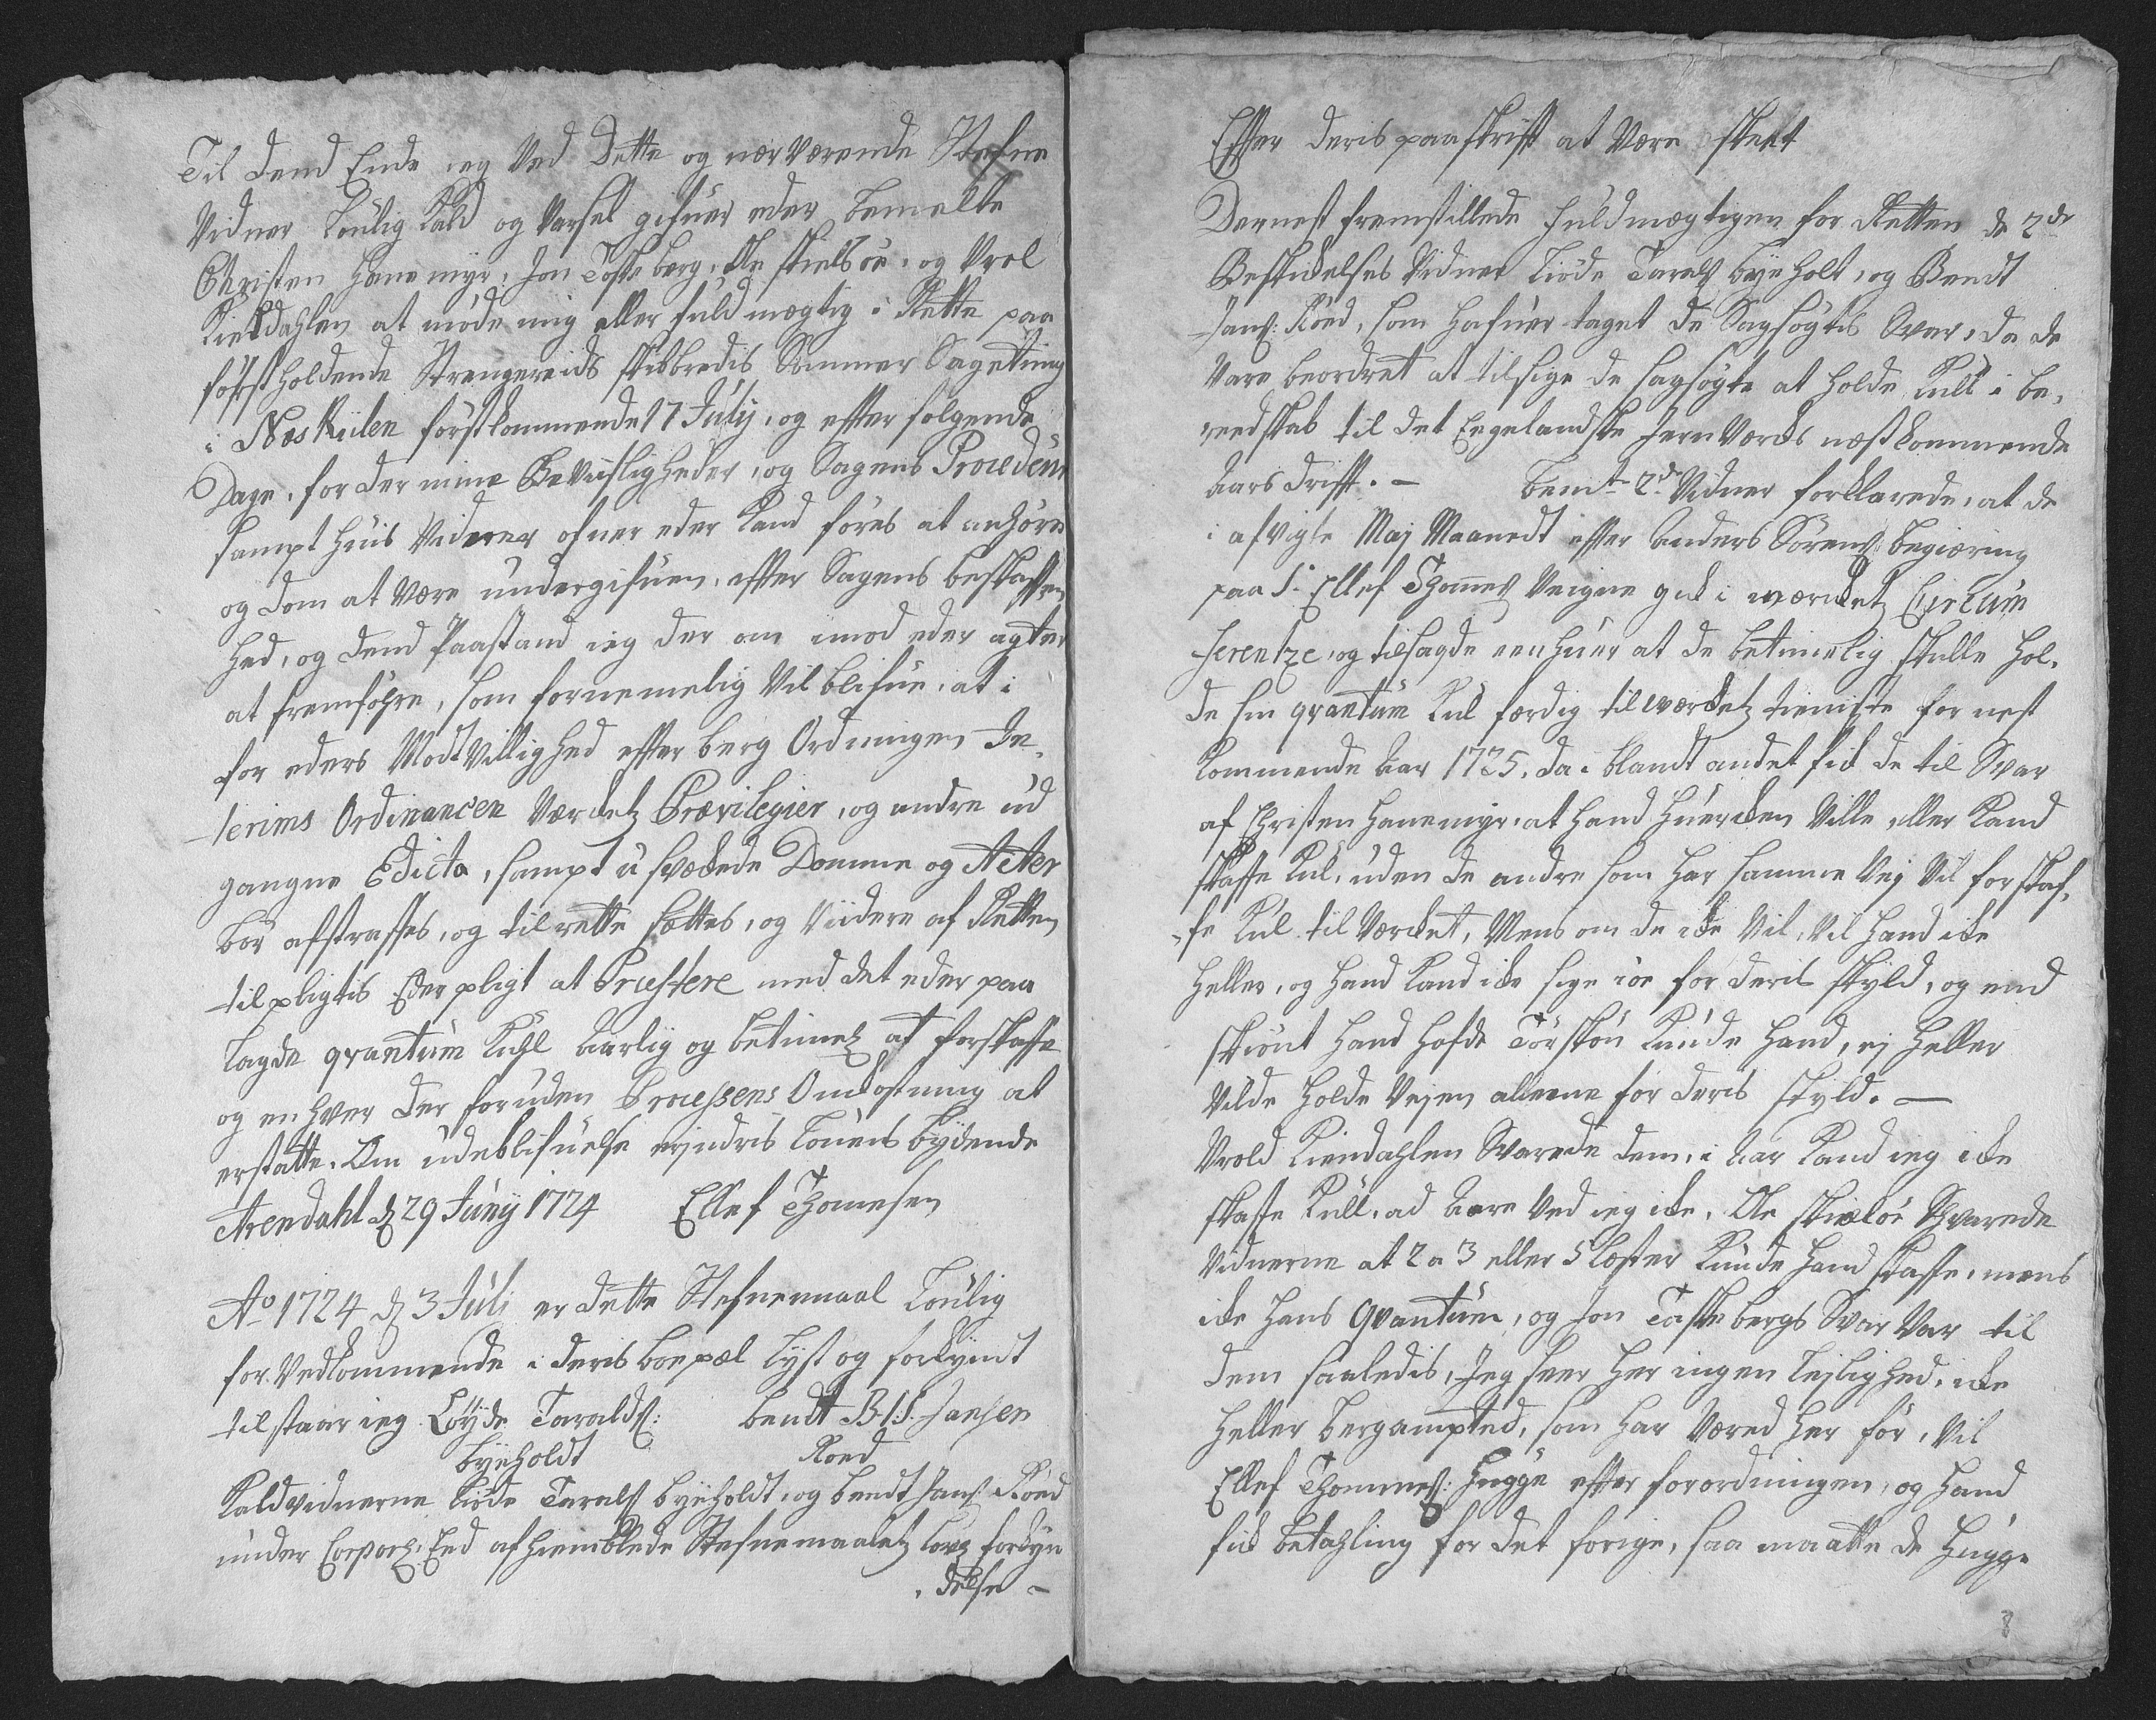 Til dend Ende ieg Ved Dette og nærværende Stefne
Vidner Loulig Kald og Varsel gifuer eder bemelte
Christen Hanemÿr, Jon Toskeberg, Ole Skielsöe, og Vrol
Kieldahlen at möde mig eller fuldmægtig i Rette paa
föhrst holdende Strengereids Skibbredis Sommer Sageting
i Næs Kiilen förstkommende 17 Julÿ, og efter fölgende
Dage, for der mine Beviisligheder, og Sagens Procedeur
sampt huis Viderer ofuer eder Kand föres at anhöre
og dom at Være undergifuen, efter Sagens beskaffen
hed, og dend Paastand ieg der om imod eder agter
at fremföhre, som fornemelig Vil blifue, at i
for eders Modtvillighed efter berg Ordningen In-
terims Ordinancen Værcketz Prævilegier, og andre ud
gangne Edicta, sampt u svækede Domme og Acter
bör afstraffes, og til rette sættes, og Viidere af Retten
tilpligtis Eder pligt at Præstere med det eder paa
lagde qvantum Kuhl Aarlig og betimetz at forskaffe
og en hver der foruden Processens Omkostning at
erstatte. Om udeblifuelse erindris Louens bÿdende
Arendahl d 29 Junÿ 1724 Ellef Thomesen
Ao 1724 d 3 Juli er dette Stefnemaal Loulig
for Vedkommende i deris boepæl lÿst og forkÿndt
tilstaar ieg Löÿde Taralds: bendt B.I.S. Jansen
bÿeholdt Röed
Kaldvidnerne Liöde Tarals bÿeholdt, og bendt Jans: Röed
under Corporl: Eed afhiemblede Stefnemaaletz Lovl forkÿn
delse -
Efter deris paaskrift at Være skeet
Dernest fremstillede fuldmægtigen for Retten de 2de
Beskikelses Vidner Liöde Tarals bÿeholt, og Bendt
Jans: Röed, som hafuer taget de Sagsögtis Svar, da de
Vare beordret at tilsige de sagsögte at holde Kull i be-
reedskab til det Eegelandske Jern Værcks næstkommende
Aars drift. - bemte 2de Vidner forklarede, at de
i afvigte Maj Maanedt efter Anders Sörens: begiæring
paa Sr Ellef Thomes: Veigne gik i værcketz Circum
ferentze, og tilsagde een huer at de betimelig skulle hol-
de sin qvantum Kul færdig til værcketz tieniste for nest
kommende Aar 1725. da i blandt andet fik de til Svar
af Christen Hanemÿr, at hand huercken Ville eller Kand
skaffe Kul, uden de andre som har samme Vej Vil forskaf-
fe Kul til Værcket, Mens om de icke Vil, Vil hand icke
heller, og hand Kand icke sige ioe for deris skÿld, og end
skiönt hand hafde Kunde hand, ej heller
Vilde holde Vejen alleene for deris skÿld. -
Vrold Kieudahlen Svarede dem, i Aar Kand ieg icke
skaffe Kull, ad Aare Ved ieg icke, Ole Skielöe Svarede
Vidnerne at 2 a 3 eller 5 læster Kunde hand skaffe, mens
icke hans Qvantum, og Jon Toskebergs Svar Var til
dem saaledis, Jeg seer her ingen Lejlighed, icke
heller bergamptet, som har Været her för, Vil
Ellef Thommes: Hugge efter forordningen, og hand
fik betahling for det forige, saa maatte de Hugge
8